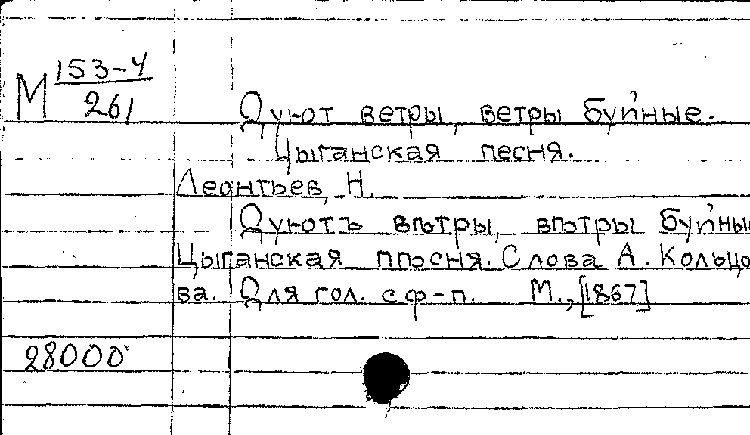 М 153-4/261
Дуют ветры, ветры буйные.
Цыганская песня.
Леонтьев, Н.
Дуютъ вѣтры, вѣтры буйны
Цыганская пѣсня. Слова А. Кольцо
ва. Для гол. с ф-п. М., [1867]
28000